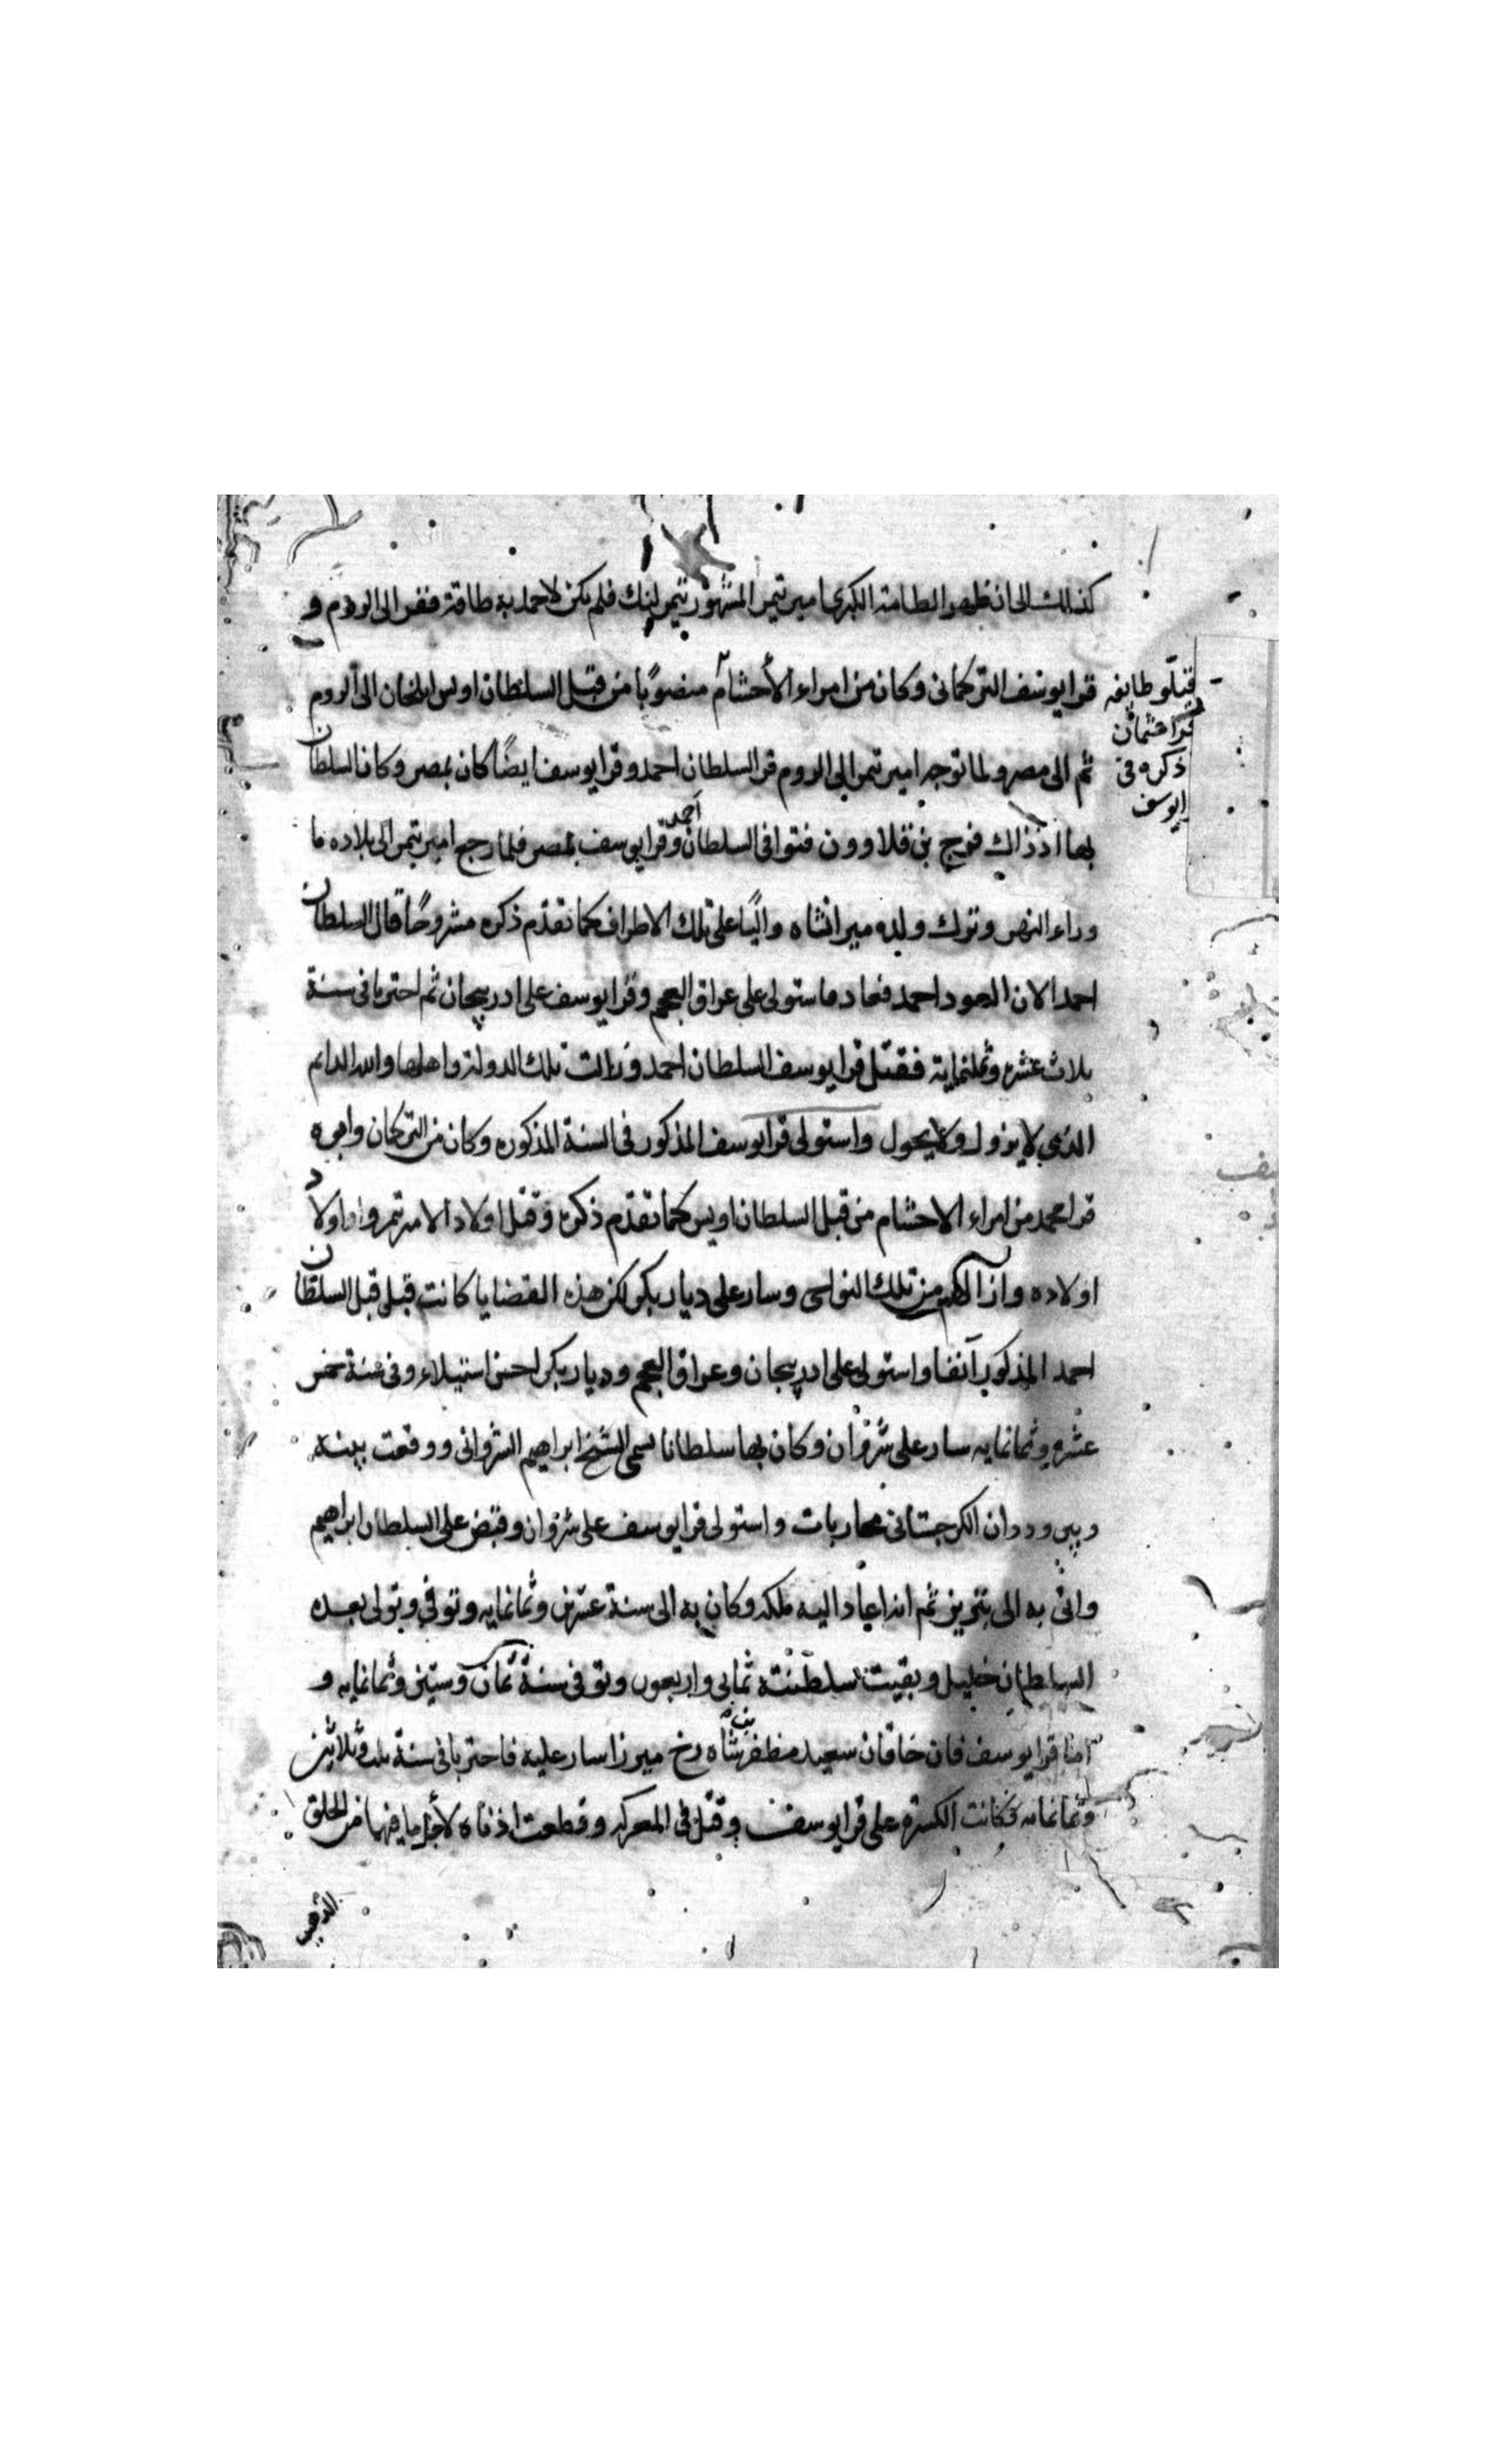 كذلك الى ان ظهر الطامة الكبرى امير تيمر المشهور بتيمر لنك فلم يكن لاحمد به طاقة ففر الى الروم و
قرايوسف التركمانى وكان من امراء الأحشام منصوبًا من قبل السلطان اويس الخان الى الروم
ثم الى مصر ولما توجه امير تيمر الى الروم فر السلطان احمد وقرايوسف ايضًا كان بمصر وكان السلطان
بها اذذاك فرج بن قلاوون فتوافى السلطان احمد وقرايوسف بمصر فلما رجع امير تيمر الى بلاده ما
وراء النهر وترك ولده ميرانشاه واليًا على تلك الاطراف كما تقدم ذكره مشروحًا قال السلطان
احمد الان العود احمد فعاد فاستولى على عراق العجم وقرايوسف على ادربيجان ثم احتربا فى سنة
ثلاث عشره وثمانماية فقتل قرايوسف السلطان احمد وزالت تلك الدولة واهلها والله الدايم
الذي لا يزول ولا يحول واستولى قرايوسف المذكور فى السنة المذكوره وكان من التركمان وابوه
قرامحمد من امراء الاحشام من قبل السلطان اويس كما تقدم ذكره وقتل اولاد الامير تمر واولاد
اولاده وازالهم من تلك النواحى وسار على ديار بكر لكن هذه القضايا كانت قبل قتل السلطان
احمد المذكور آنفا واستولى على ادربيجان وعراق العجم وديار بكر احسن استيلاء وفى سنة خمس
عشره وثمانمايه سار على شروان وكان بها سلطانا يسمى الشيخ ابراهيم الشروانى ووقعت بينه
وبين وردان الكرجستانى محاربات واستولى قرايوسف على شروان وقبض على السلطان ابراهيم
واتى به الى تبريز ثم انه اعاد اليه ملكه وكان به الى سنة عشرين وثمانمايه وتوفي وتولى بعده
السلطان خليل وبقيت سلطنته ثمانى واربعون وتوفى سنة ثمان وستين وثمانمايه و
اما قرايوسف فان خاقان سعيد مظفر شاه رخ ميرزا سار عليه فاحتربا فى سنة ثلاث وثلاثين
وثمانمايه فكانت الكسرة على قرايوسف وقتل فى المعركه وقطعت اذناه لأجل ما فيهما من الحلق
الذهب
طايفه
قراعثمان
ذكره فى
ايوسف